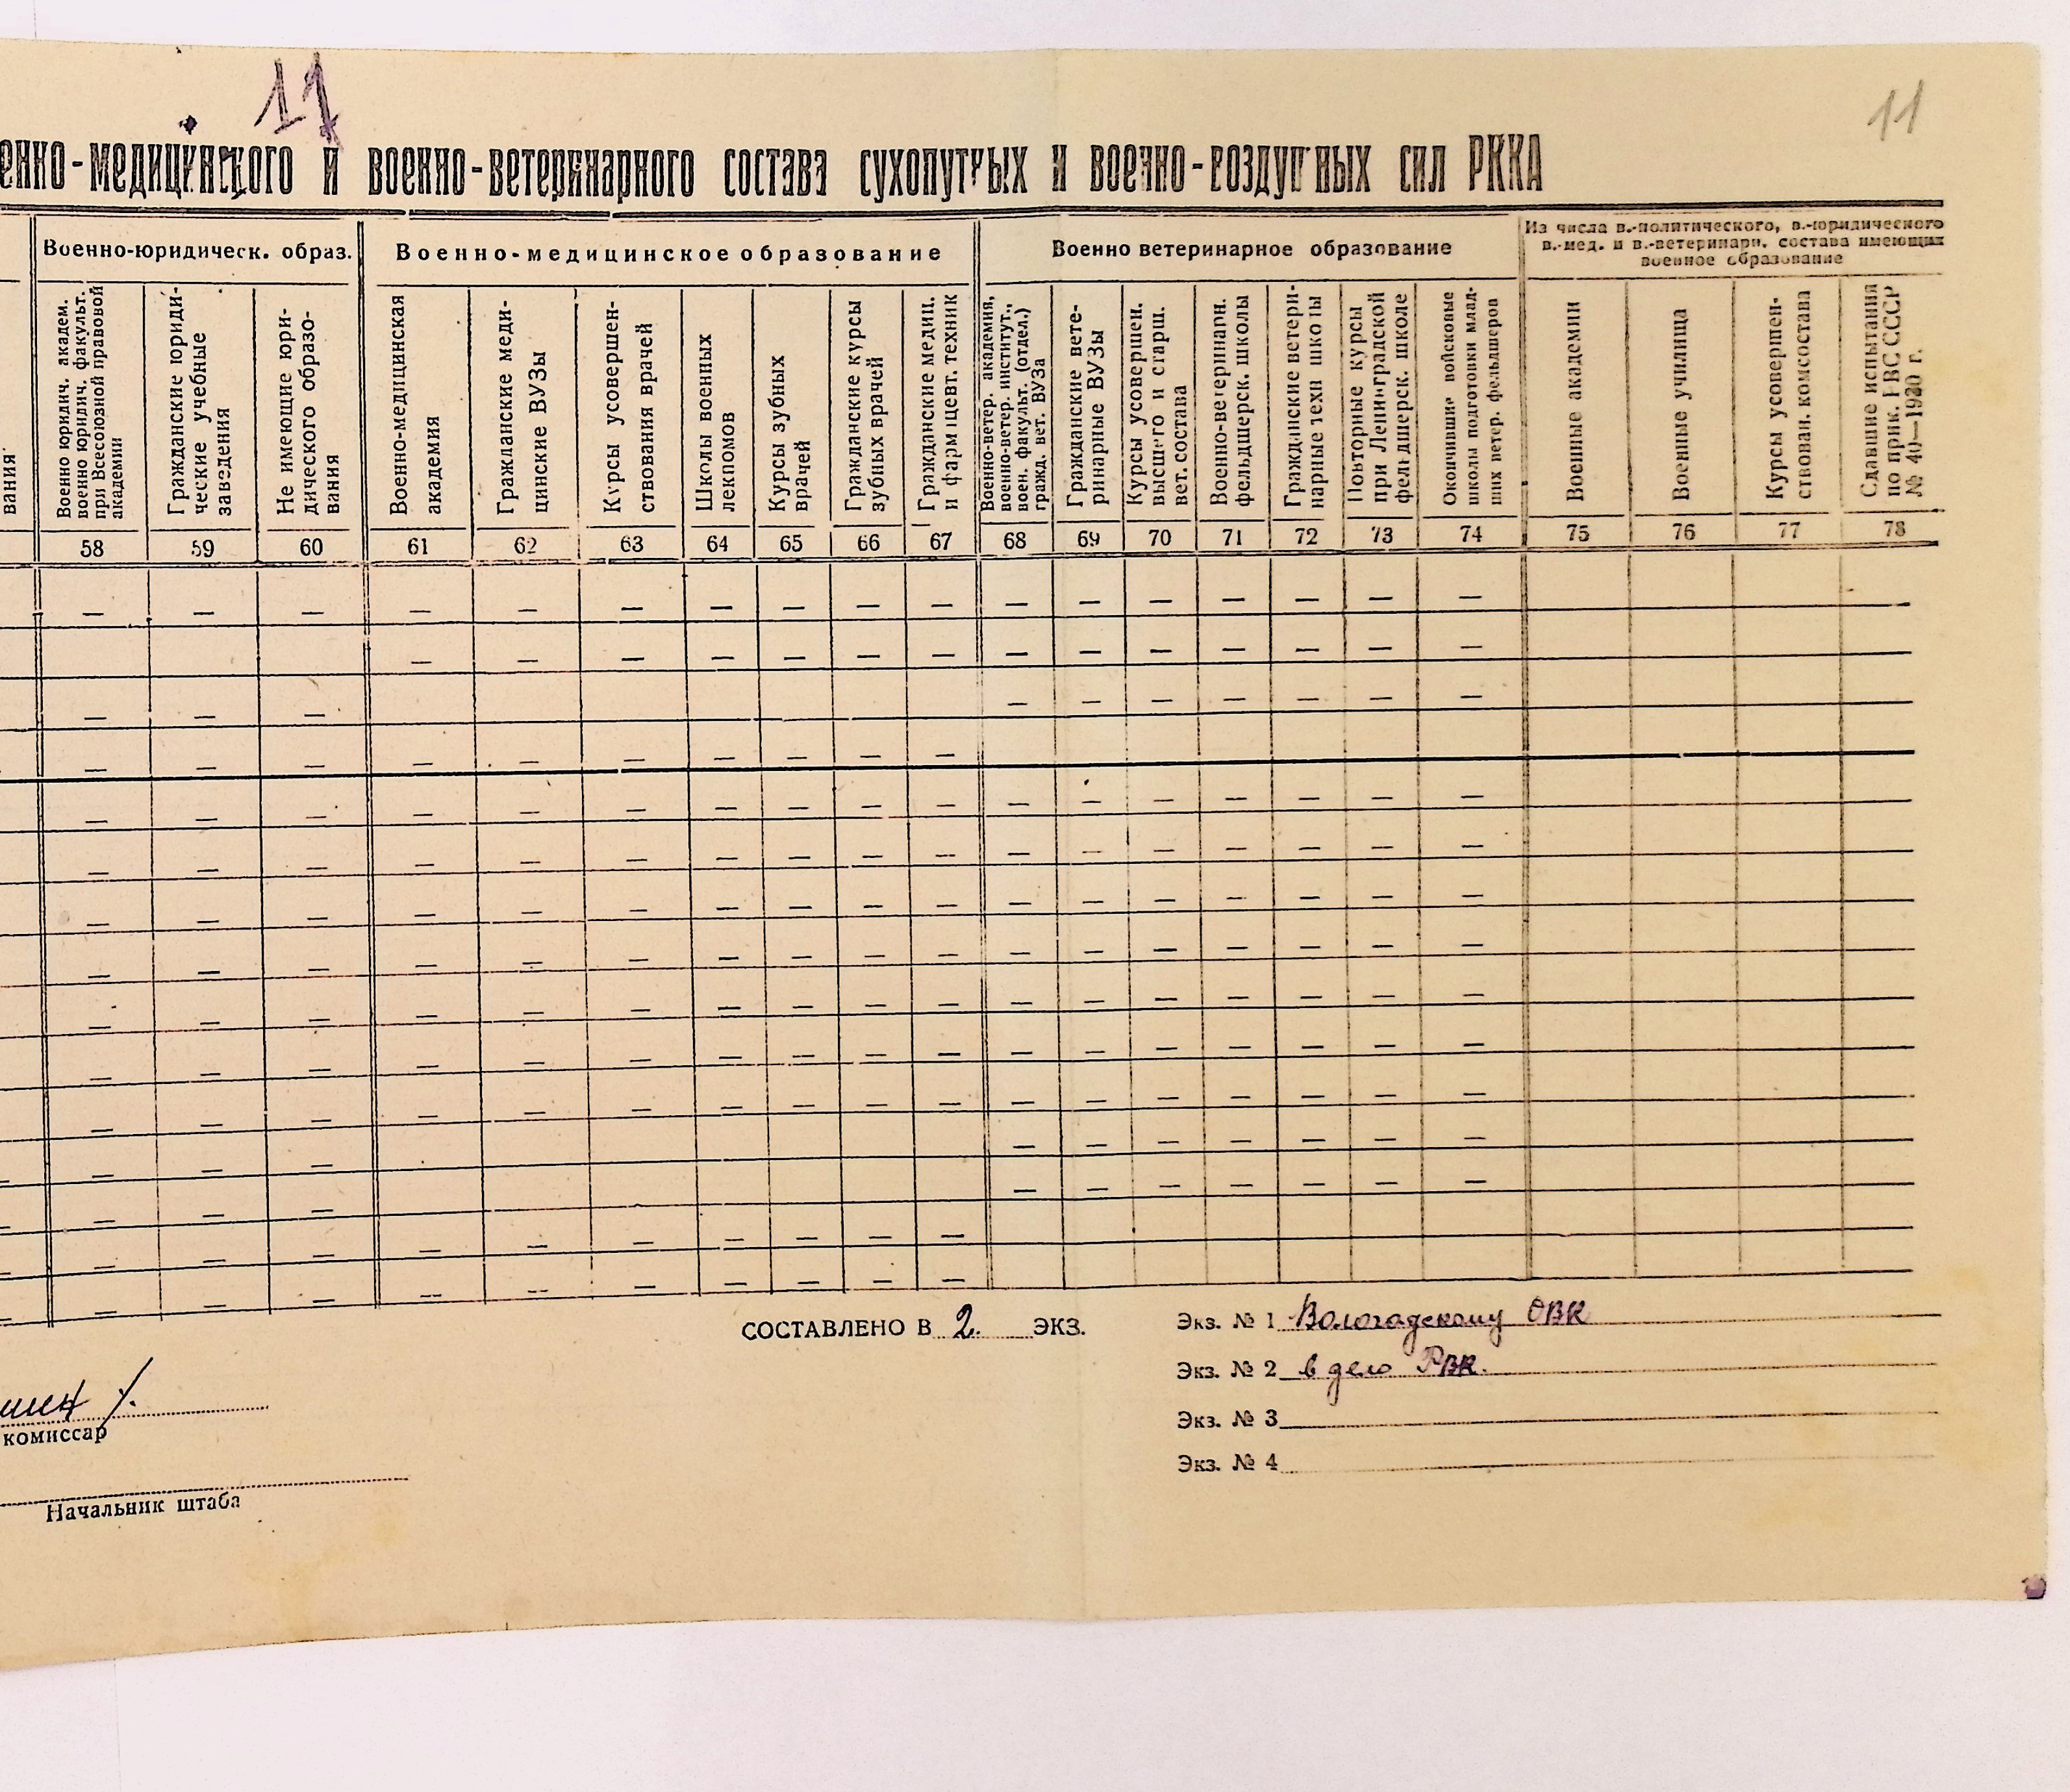 11
11
енно-медицинского и военно-ветеринарного состава сухопутных и военно-воздушных сил РККА
Военно-юридическ. образ.
Военно-медицинское образование
Военно ветеринарное образование
Из числа в.-политического, в.-юридического
в.-мед. и в.-ветеринарн. состава имеющих
военное образование
вания
Военно юридич. академ.
военно юридич. факульт.
при Всесоюзной правовой
академии
Гражданские юриди-
ческие учебные
заведения
Не имеющие юри-
дического образо-
вания
Военно-медицинская
академия
Гражданские меди-
цинские ВУЗы
Курсы усовершен-
ствования врачей
Школы военных
лекпомов
Курсы зубных
врачей
Гражданские курсы
зубных врачей
Гражданские медиц.
и фармацевт. техник
Военно-ветер. академия,
военно-ветер. институт,
воен. факульт. (отдел.)
гражд. вет. ВУЗа
Гражданские вете-
ринарные ВУЗы
Курсы усовершен.
высшего и старш.
вет. состава
Военно-ветеринарн.
фельдшерск. школы
Гражданские ветери-
нарные техн школы
Повторные курсы
при Ленинградской
фельдшерск. школе
Окончившие войсковые
школы подготовки млад-
ших ветер. фельдшеров
Военные академии
Военные училища
Курсы усовершен-
ствован. комсостава
Сдавшие испытания
по прик. РВС СССР
№ 40—1930 г.
58 59 60 61 62 63 64 65 66 67 68 69 70 71 72 73 74 75 76 77 78
— — — — — — — — — — — — — — — — —
— — — — — — — — — — — — — —
— — — — — — — — — —
— — — — — — — — — —
— — — — — — — — — — — — — — — — —
— — — — — — — — — — — — — — — — —
— — — — — — — — — — — — — — — — —
— — — — — — — — — — — — — — — — —
— — — — — — — — — — — — — — — — —
— — — — — — — — — — — — — — — — —
— — — — — — — — — — — — — — — — —
— — — — — — — — — —
— — — — — — — — — —
— — — — — — — — — —
— — — — — — — — — —
СОСТАВЛЕНО В 2. ЭКЗ.
Экз. № 1 Вологодскому ОВК
Экз. № 2 в дело РВК.
Экз. № 3
Экз. № 4
комиссар
Начальник штаба